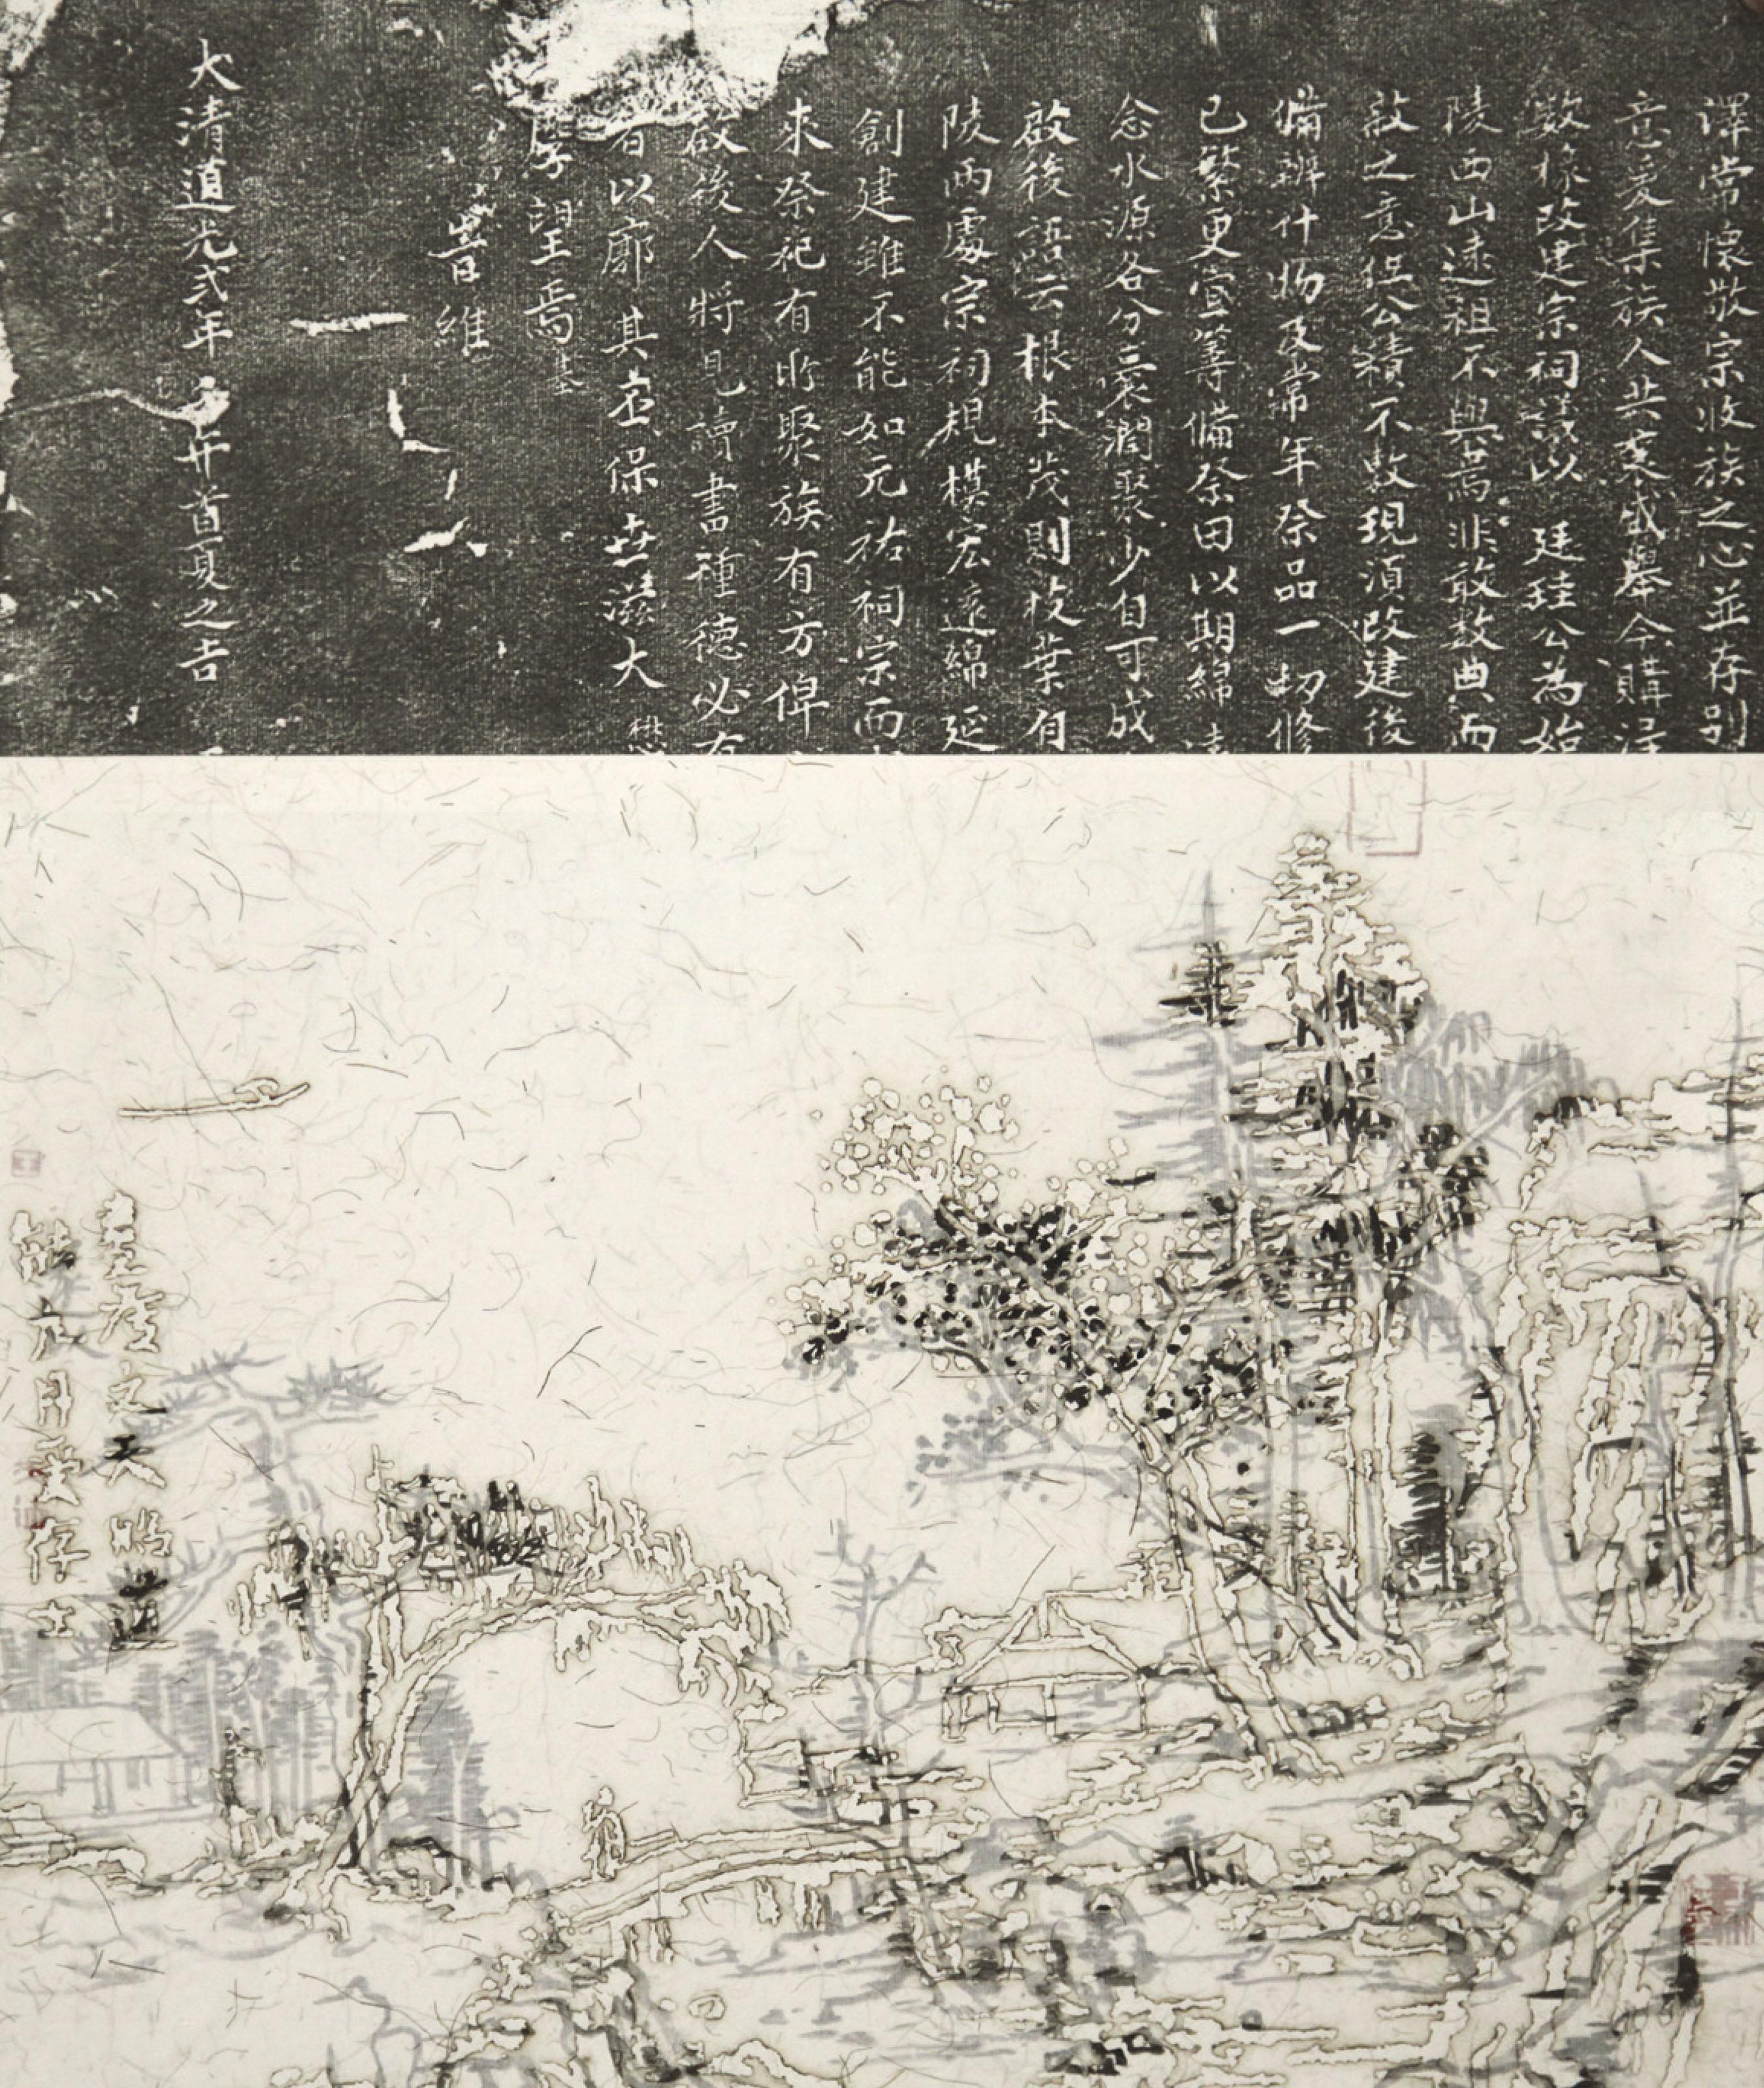 澤常懷敬宗收族之心並存別
意爰集族人共襄盛舉今購
數椽改建宗祠議以廷珪公為始
陵西山遠祖不與焉非敢數典而
敬之意但公積不敷現須改建後
備辦什物及常年祭品一切修
已繁更宜籌備祭田以期綿
念水源各分衰潤聚少自可成
啟後語云根本茂則枝葉有
陵兩處宗祠規模宏遠綿延
創建雖不能如元祐祠宗而
來祭祀有所聚族有方俾
啟後人將見讀書種德必有
者以廓其丕基保世滋大
厚望焉
時維
大清道光弍年首夏之吉
文天
月堂存士